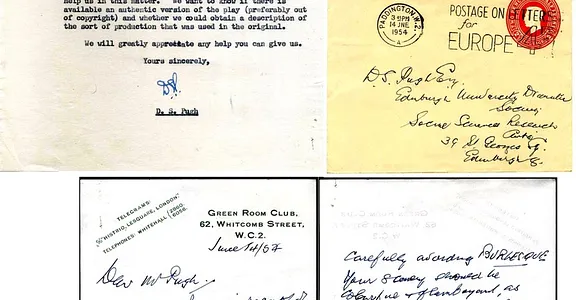 help us in this matter. We want to know if there is
available an authentic version of the play (preferably out
of copyright) and whether we could obtain a description of
the sort of production that was used in the original.
We will greatly appreciate any help you can give us.
Yours sincerely,
D. S. Pugh
PADDINGTON. W.2.
3 15PM
14 JNE
1954
A
POSTAGE ON LETTER
FOR
EUROPE
D.S. Pugh Esq.
Edinburgh University Dramatic
Society
Social Sciences Research
39 St Georges Sq.
Edinburgh 8.
TELEGRAMS:
"HISTRIO, LESQUARE, LONDON."
TELEPHONES: WHITEHALL
GREEN ROOM CLUB,
62, WHITCOMB STREET,
W.C.2.
June 14/54
Dear Mr Pugh.
Carefully avoiding BURLESQUE
your Scenery should be
Colourful & flamboyant, as